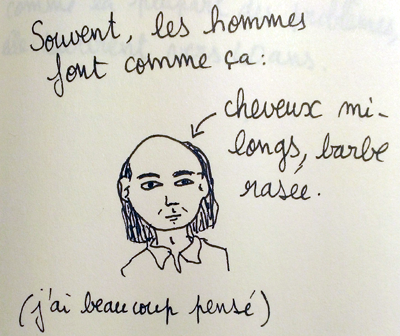 Souvent, les hommes
font comme ça:
cheveux mi-
longs, barbe
rasée.
(j'ai beaucoup pensé)